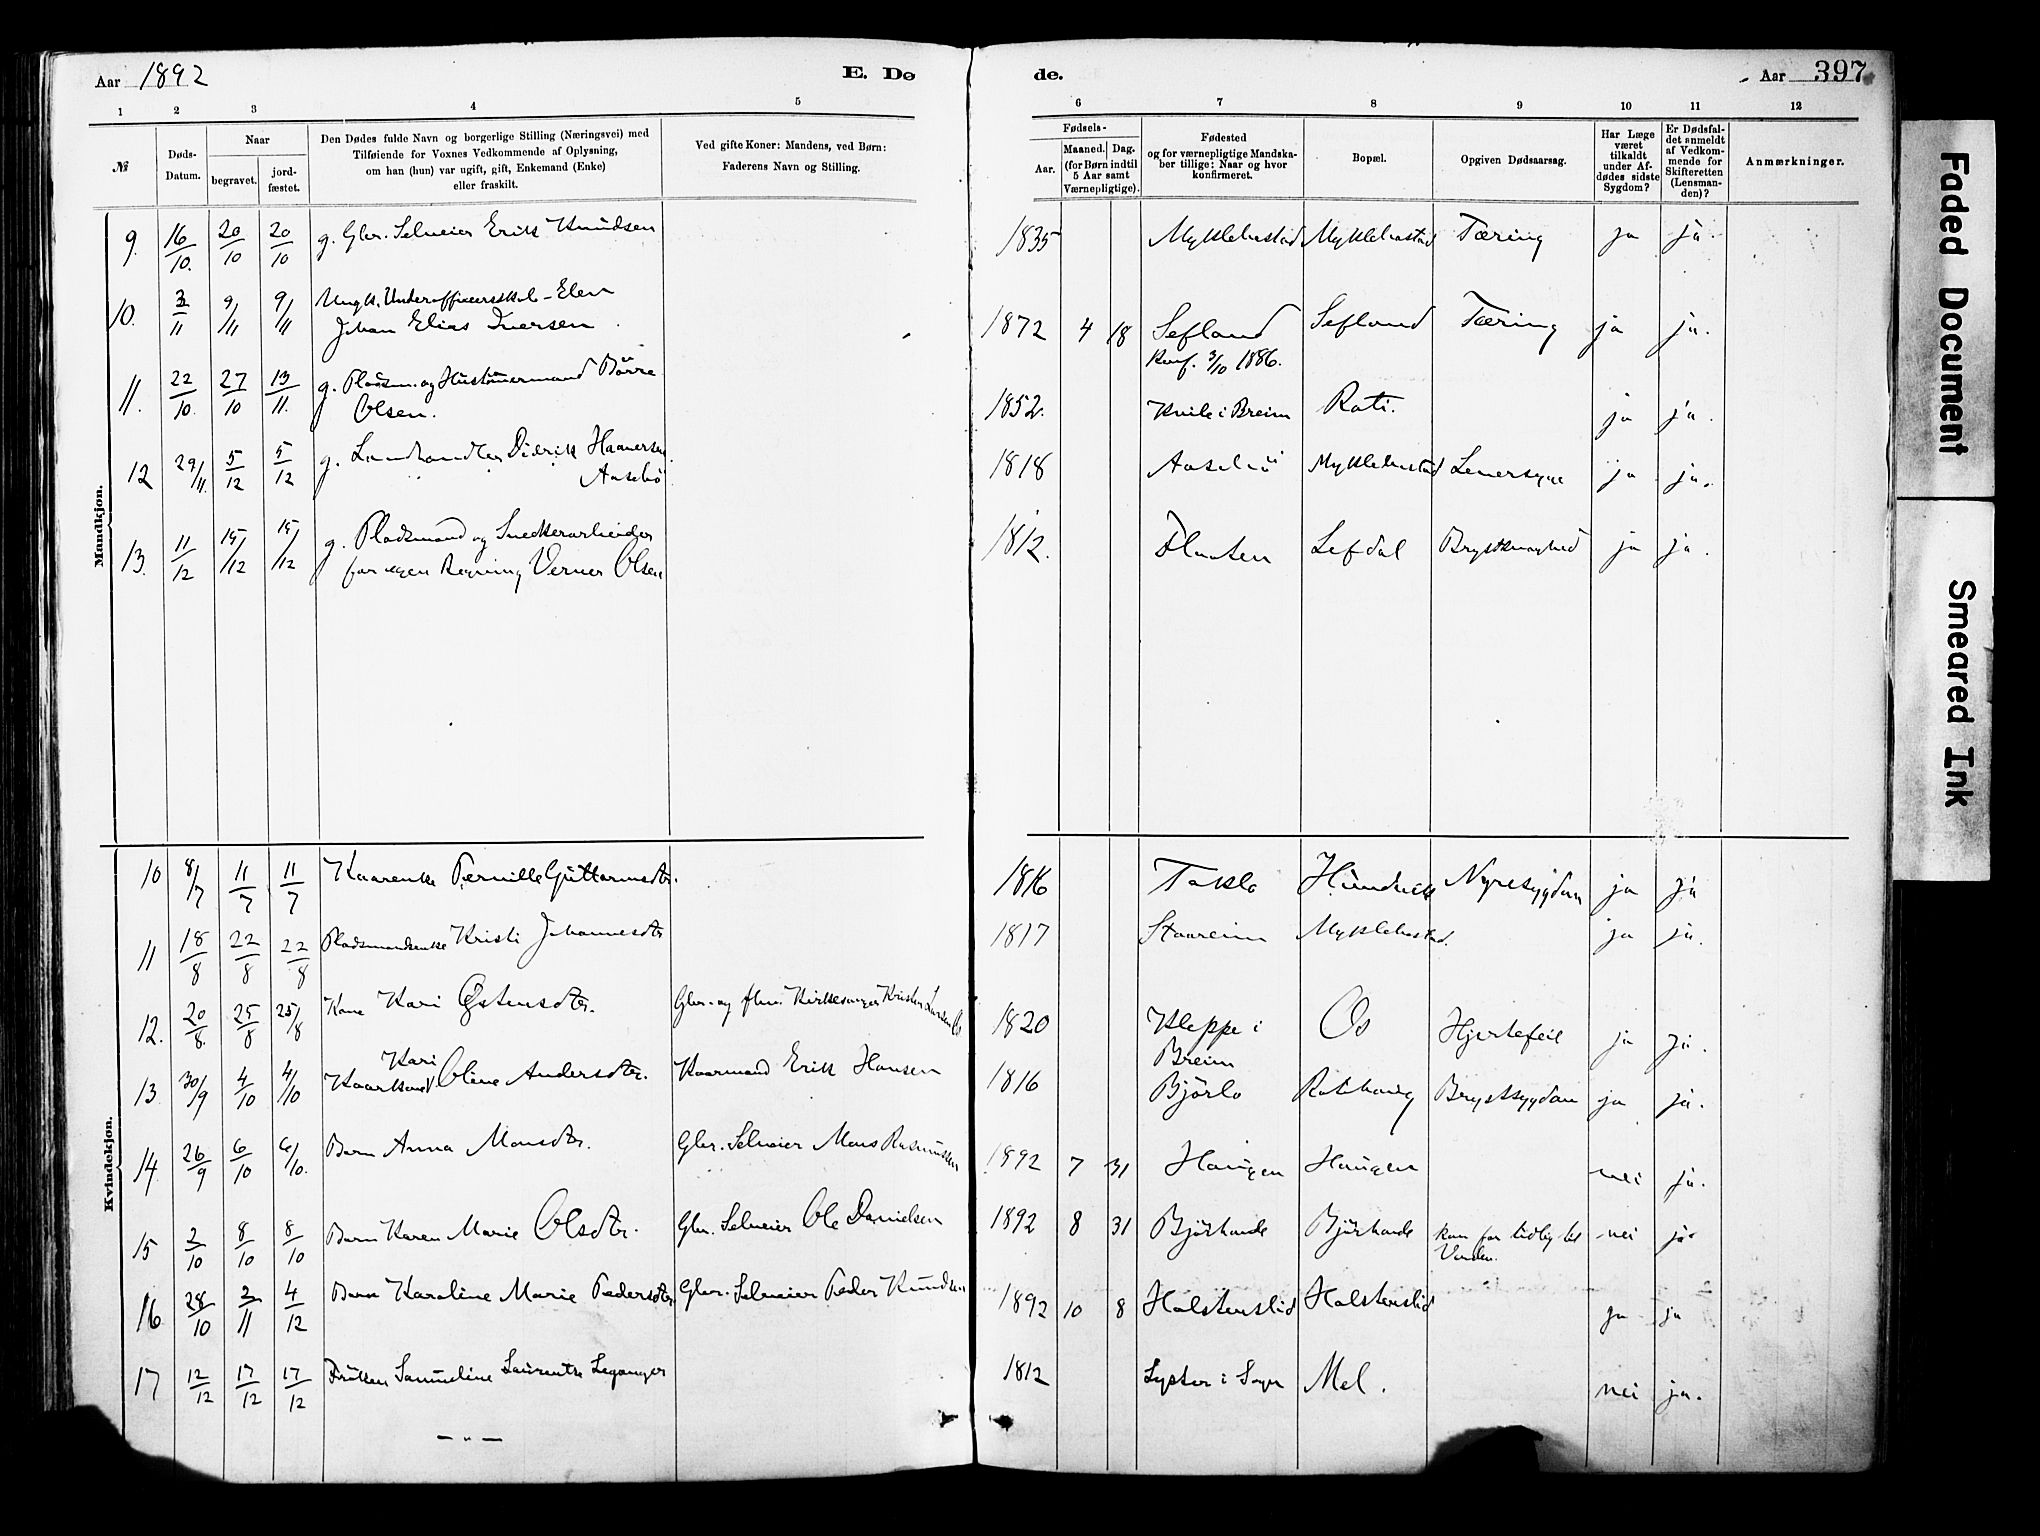 Aar 1892 E. Dø de. Aar 397
1 2 3 4 5 6 7 8 9 10 11 12
№ Døds-Datum. Naar begravet. jord-fæstet. Den Dødes fulde Navn og borgerlige Stilling (Næringsvei) med Tilføiende for Voxnes Vedkommende af Oplysning, om han (hun) var ugift, gift, Enkemand (Enke) eller fraskilt. Ved gifte Koner: Mandens, ved Børn: Faderens Navn og Stilling. Fødsels- Aar. Maaned. Dag. (for Børn indtil 5 Aar samt Værnepligtige). Fødested og for værnepligtige Mandskaber tillige: Naar og hvor konfirmeret. Bopæl. Opgiven Dødsaarsag. Har Læge været tilkaldt under Afdødes sidste Sygdom? Er Dødsfaldet anmeldt af Vedkommende for Skifteretten (Lensmanden)? Anmærkninger.
Mandkjøn.
9. 16/10. 20/10 20/10 g. Gbr. Selveier Erik Knudsen 1835 Myklebustad Myklebustad Tæring ja ja.
10. 3/11 9/11 9/11 Ungk. Underofficersskole-Elev
Johan Elias Iversen 1872 4 18 Sefland Sefland Tæring ja ja.
Konf. 3/10 1886.
11. 22/10. 27/10 13/11. g. Pladsm. og Hustømermand Børre
Olsen. 1852. i Breim Roti. ja ja.
12 29/11. 5/12 5/12 g. Landhandler Didrik
Aasebø 1818 Aasebø Myklebustad Leversyge ja ja.
13. 11/12 15/12 15/12 g. Pladsmand og Snedkerarbeider
for egen Regning Verner Olsen 1812. Lefdal Brystsvaghed ja ja.
Kvindekjøn.
10 8/7 11/7 11/7 Kaarenke Pernille Guttormsdtr. 1816 Taklo Hundeik Nyresygdom ja ja
11 18/8 22/8 22/8 Pladsmandsenke Kristi Johannesdtr 1817 Staareim Myklebustad. ja ja.
12. 20/8. 25/8 25/8 Kone Kari Østensdtr. Gbr. og fhv. Kirkesanger Kristen Larsen Os 1820 Kleppe i
Breim Os Hjertefeil ja ja.
13 30/9 4/10 4/10 Kaarkone Kari Oline Andersdtr. Kaarmand Erik Hansen 1816 Bjørlo Rotihaug Brystsygdom ja ja.
14 26/9 6/10 6/10. Barn Anna Monsdtr. Gbr. Selveier Mons Rasmussen 1892 7 31 Haugen Haugen nei ja.
15 2/10 8/10 8/10 Barn Karen Marie Olsdtr. Gbr. Selveier Ole Danielsen 1892 8 31 Bjørhovde Bjørhovde kom for tidlig til
Verden. nei ja.
16 28/10 2/11 4/12 Barn Karoline Marie Pedersdtr. Gbr. Selveier Peder Knudsen 1892 10 8 Holstenslid Holstenslid ja ja
17 12/12 17/12 17/12 Frøken Samueline Laurentze Leganger 1812 Lyster i Sogn Mel. nei ja.
— „ —
Faded Document
Smeared Ink